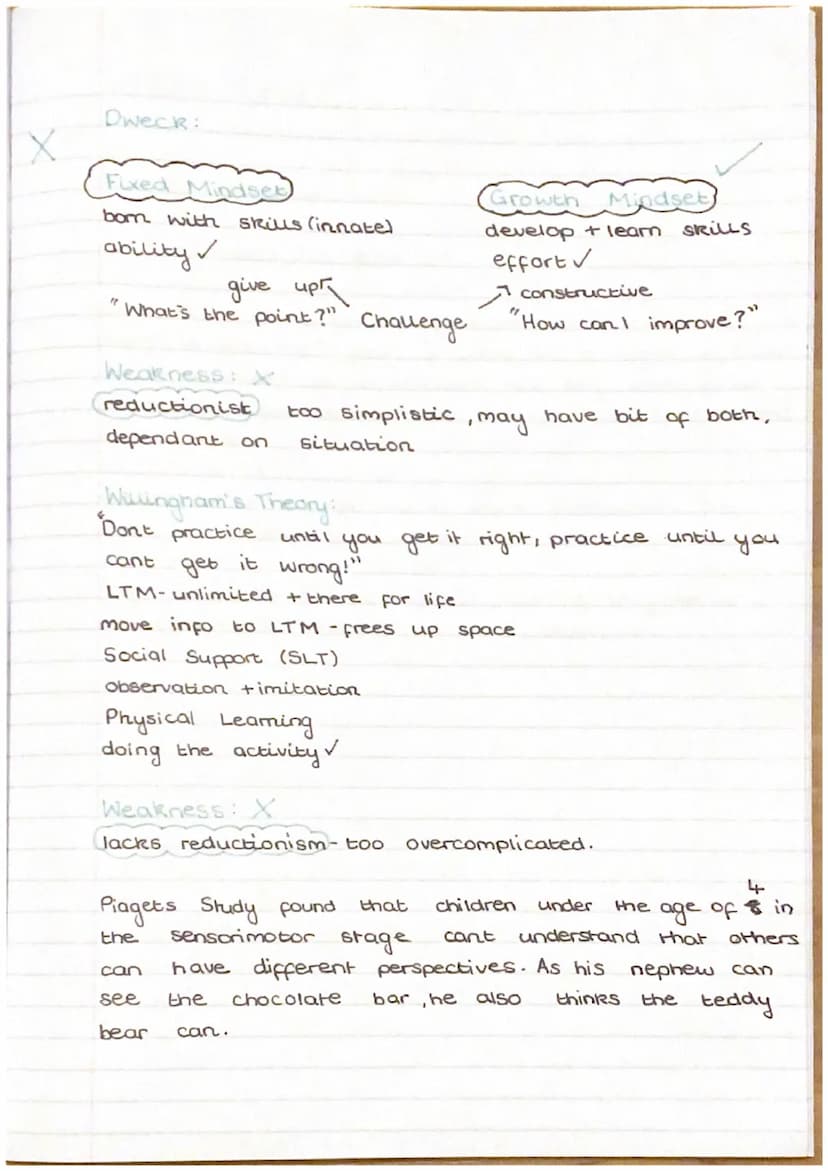 Dweck:
X ✓
Fixed Mindset Growth Mindset
born with skills (innate) develop + learn skills
ability ✓ effort ✓
give up ↖ ↗ constructive
"What's the point?" Challenge "How can I improve?"
Weakness: X
reductionist too simplistic, may have bit of both,
dependant on situation
Willingham's Theory:
"Dont practice until you get it right, practice until you
cant get it wrong!"
LTM - unlimited + there for life
move info to LTM - frees up space
Social Support (SLT)
observation + imitation
Physical Learning
doing the activity ✓
Weakness: X
lacks reductionism - too overcomplicated.
4
Piagets Study found that children under the age of in
the sensorimotor stage cant understand that others
can have different perspectives. As his nephew can
see the chocolate bar, he also thinks the teddy
bear can.